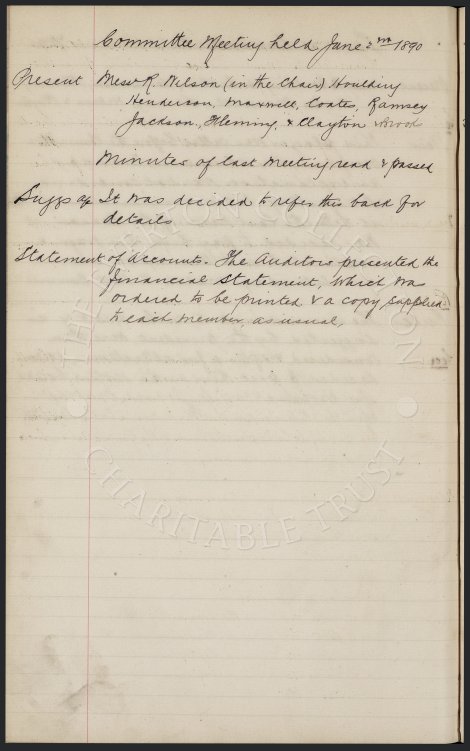 Committee Meeting held June 2nd 1890
Present Messrs R. Wilson (in the Chair) Houlding
Henderson, Maxwell, Coates, Ramsey
Jackson, Fleming, & Clayton & Brood
Minutes of last Meeting read & passed
It was decided to refer this back for
details
Statement of Accounts. The Auditors presented the
financial statement, which was
ordered to be printed & a copy supplied
to each member, as usual,
THE EVERTON COLLECTION
CHARITABLE TRUST